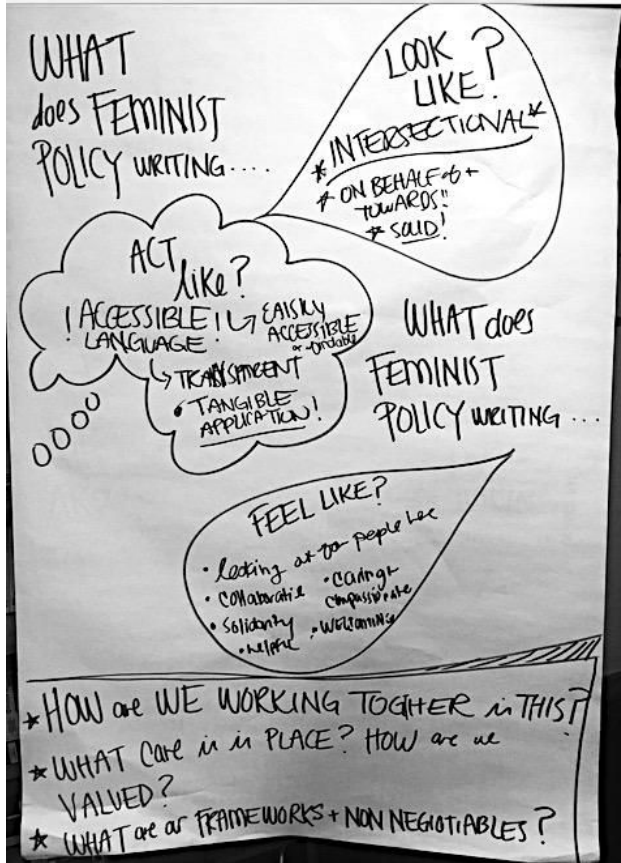 WHAT
does FEMINIST
POLICY WRITING....
LOOK
LIKE?
* INTERSECTIONAL *
* ON BEHALF of +
TOWARDS!!
* SOLID!
ACT
like?
! ACCESSIBLE !
LANGUAGE
↳ EAISLY
ACCESSIBLE
or affordable
↳ TRANSPARENT
• TANGIBLE
APPLICATION!
WHAT does
FEMINIST
POLICY WRITING ...
FEEL LIKE?
• looking at people
• COllABORATIE
• SOlidARity
• helpful
• CARing +
COMPASSIONATE
• WELCOMING
* HOW are WE WORKING TOGTHER in THIS?
* WHAT Care is in PLACE? HOW are we
VALUED?
* WHAT are our FRAMEWORKS + NON NEGIOTIABLES?